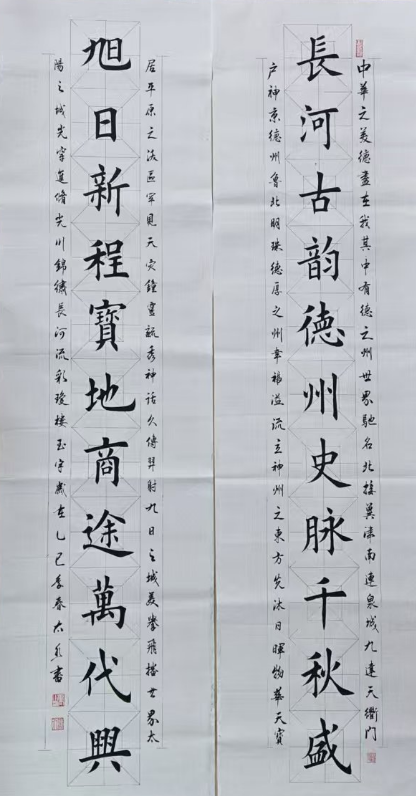 中華之美德盡在我其中有德之州世界馳名北接冀津南連泉城九達天衢門
長河古韻德州史脉千秋盛
户神京德州魯北明珠德厚之州幸福溢流立神州之東方先沐日暉物華天寶
居平原之沃區罕見天灾鐘靈毓秀神話久傳羿射九日之城美譽飛播世界太
旭日新程寶地商途萬代興
陽之城先宰道脩光川錦綉長河流彩瓊樓玉宇歲在乙巳季春太 書